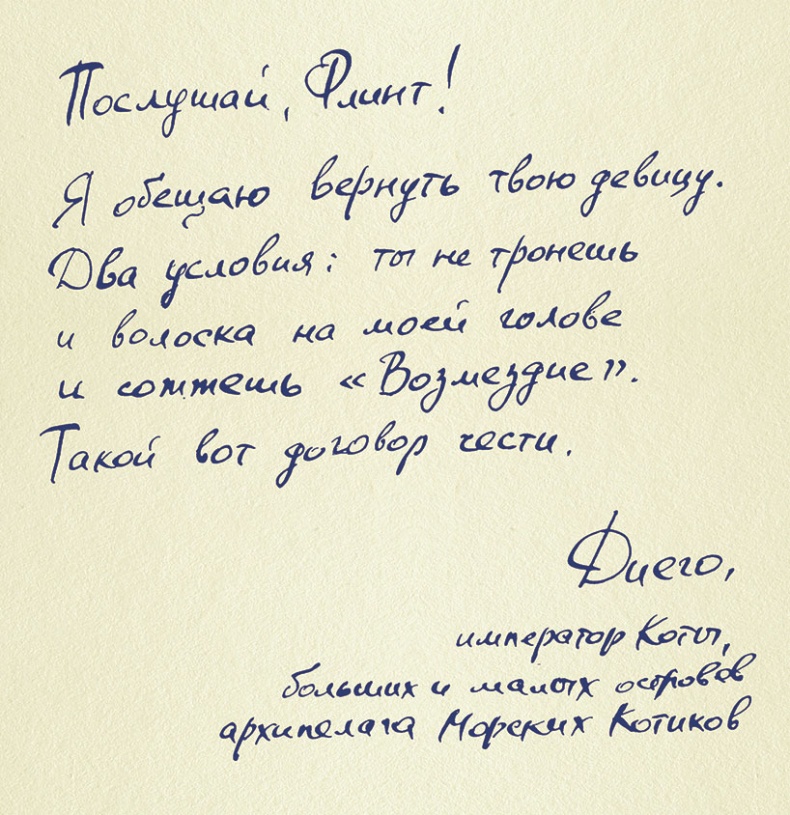 Послушай, Флинт!
Я обещаю вернуть твою девицу.
Два условия: ты не тронешь
и волоска на моей голове
и сожжешь «Возмездие».
Такой вот договор чести.
Диего,
император Коты,
больших и малых островов
архипелага Морских Котиков